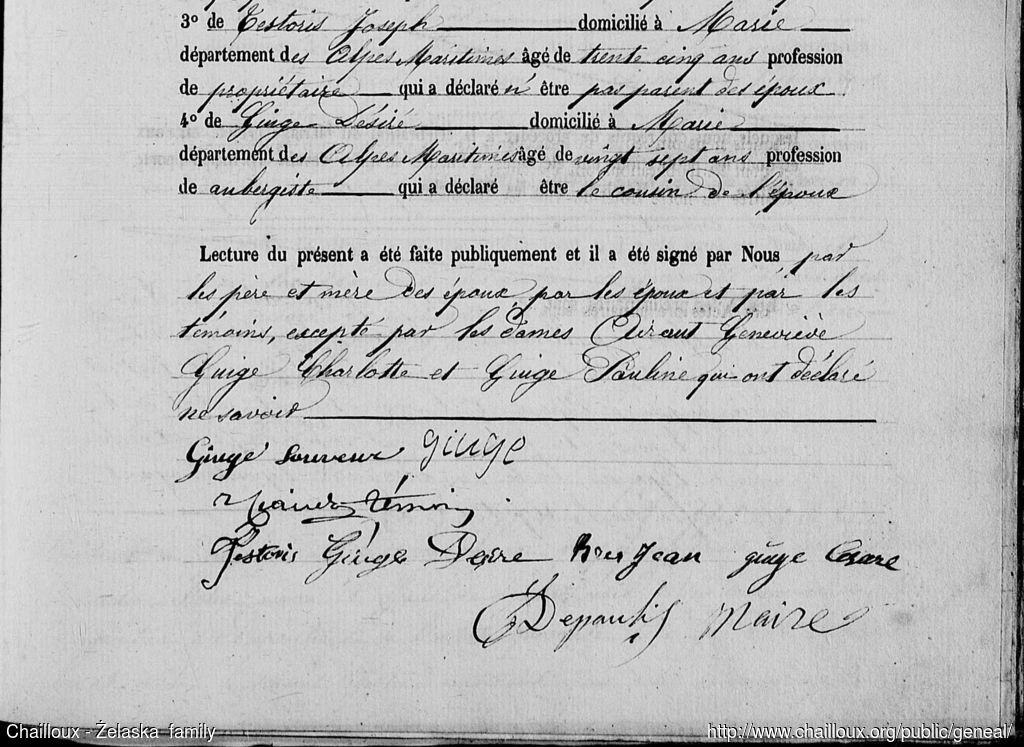 3º de Testoris Joseph domicilié à Marie
département des Alpes Maritimes âgé de trente cinq ans profession
de propriétaire qui a déclaré n' être pas parent des époux
4º de Giuge Désiré domicilié à Marie
département des Alpes Maritimes âgé de vingt sept ans profession
de aubergiste qui a déclaré être le cousin de l'époux
Lecture du présent a été faite publiquement et il a été signé par Nous par
les père et mère des époux, par les époux et par les
témoins, excepté par les dames Geneviève
Giuge Charlotte et Giuge Pauline qui ont déclaré
ne savoir
Giuge Sauveur giuge
témoin
Testoris Giuge Desire Jean giuge Cesare
Maire
Chailloux - Żelaska family
http://www.chailloux.org/public/geneal/